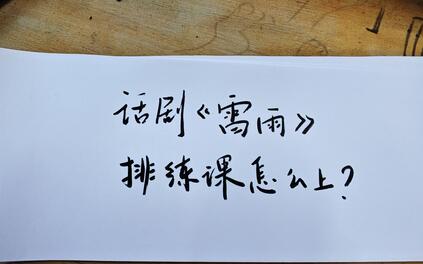 话剧《雷雨》
排练课怎么上？